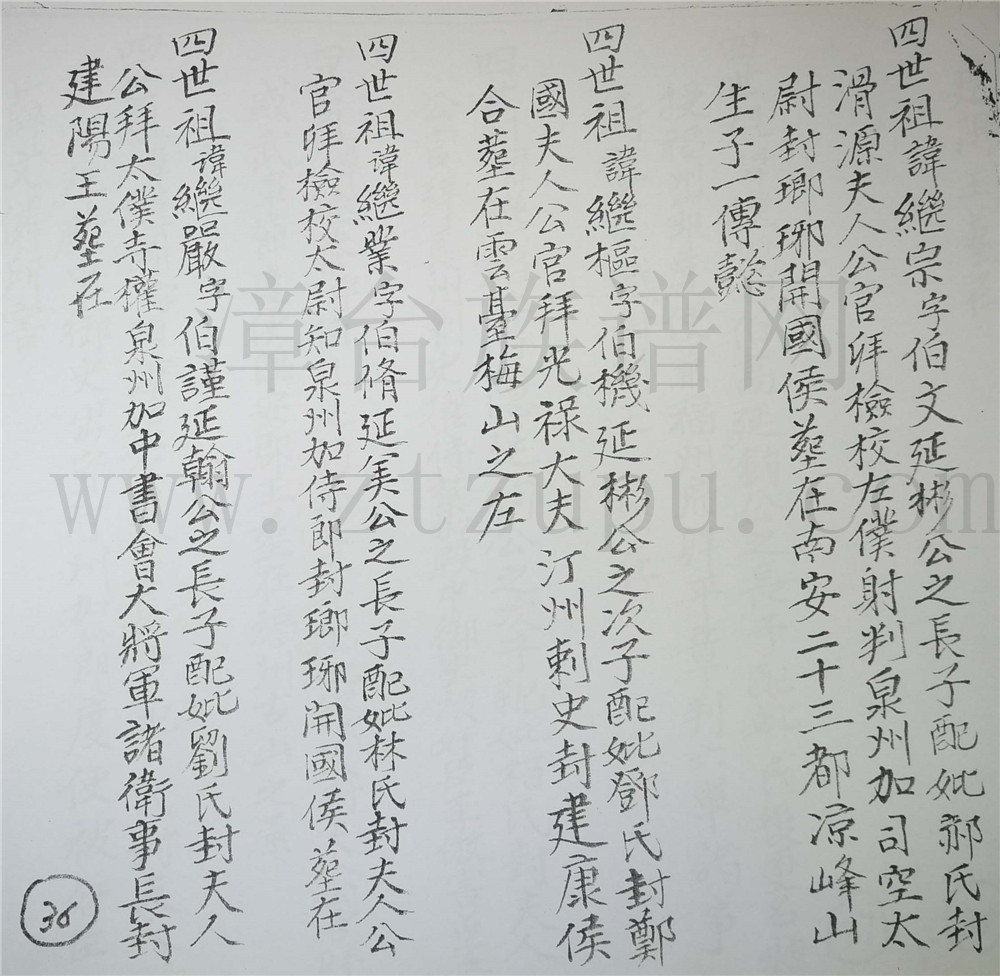 四世祖諱繼宗字伯文延彬公之長子配妣郝氏封
滑源夫人公官拜檢校左僕射判泉州加司空太
尉封瑯琊開國侯塟在南安二十三都凉峰山
生子一傳懿
四世祖諱繼樞字伯機延彬公之次子配妣鄧氏封鄭
國夫人公官拜光祿大夫汀州刺史封建康侯
合塟在雲臺梅山之左
四世祖諱繼業字伯脩延美公之長子配妣林氏封夫人公
官拜檢校太尉知泉州加侍郎封瑯琊開國侯塟在
四世祖諱繼嚴字伯謹延翰公之長子配妣劉氏封夫人
公拜太僕寺權泉州加中書會大將軍諸衛事長封
建陽王塟在
36
漳台族谱网
www.ztzupu.com